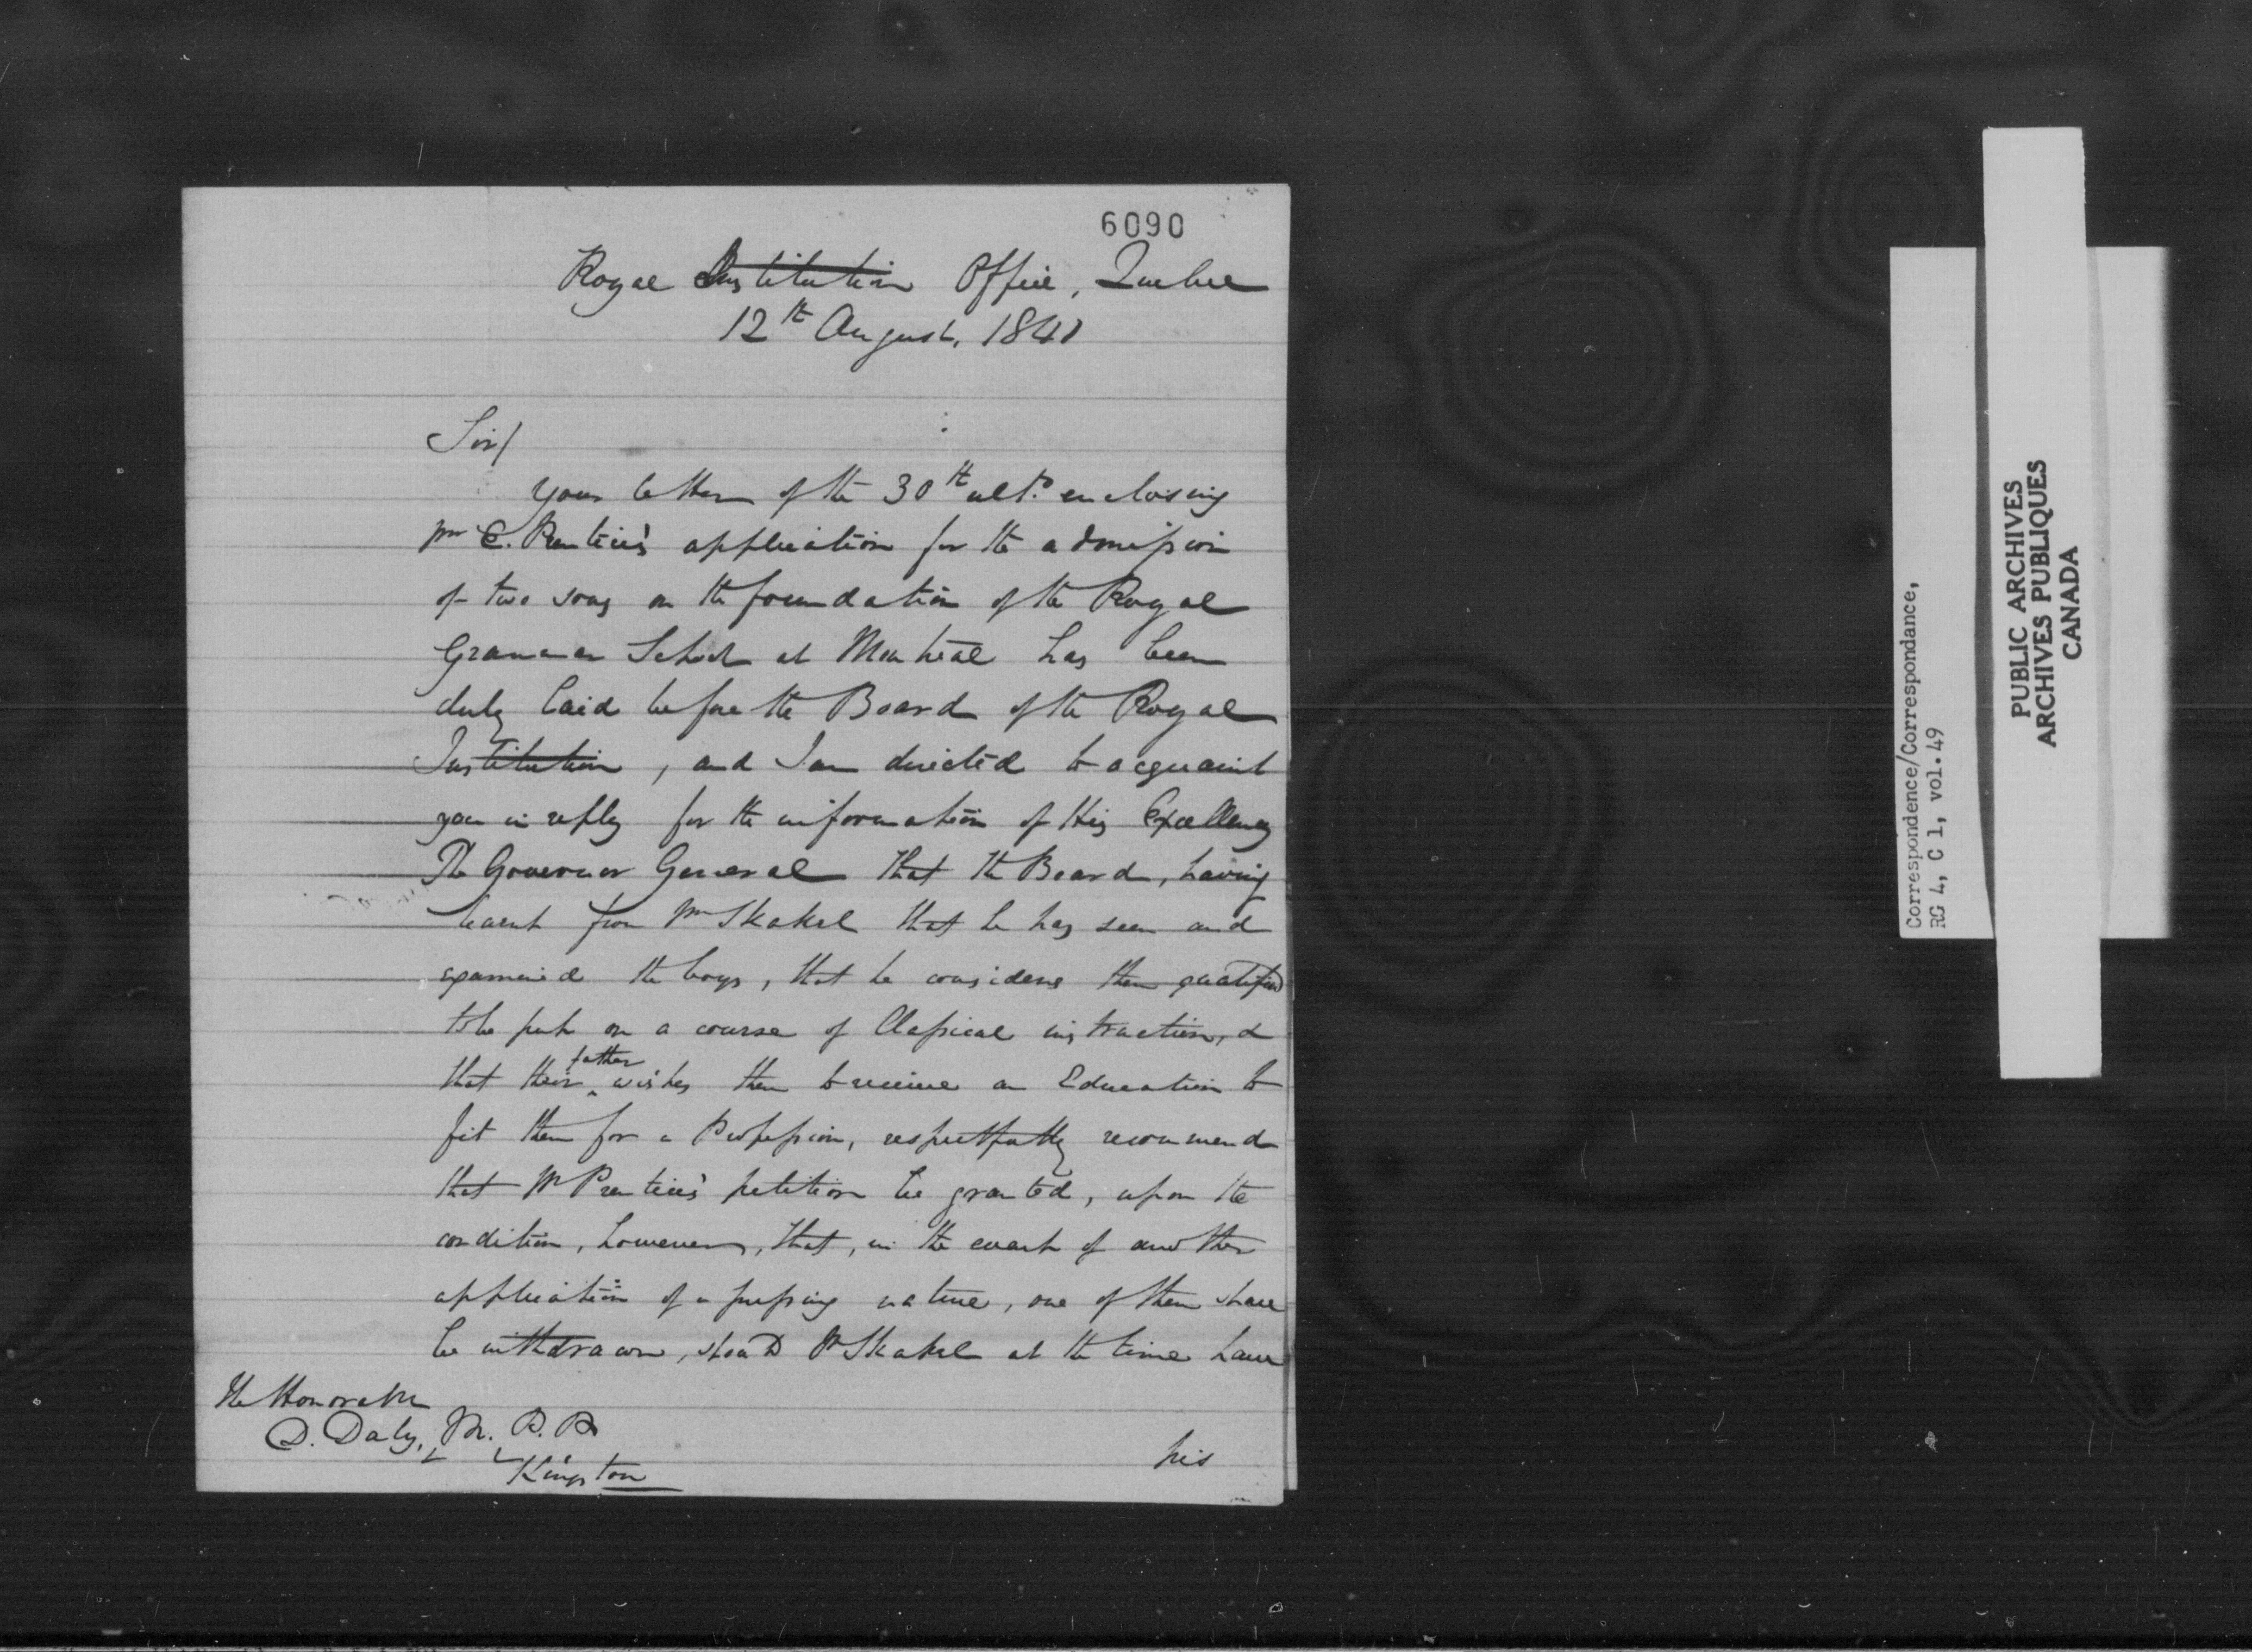 6090
Royal Institution Office, Quebec
12th August, 1841
Sir/
Your letter of the 30th ulto. enclosing
Mr C. Prentice's application for the admission
of two sons on the foundation of the Royal
Grammar School at Montreal has been
duly laid before the Board of the Royal
Institution, and I am directed to acquaint
you in reply for the information of His Excellency
The Governor General that the Board, having
learnt from Mr Skakel that he has seen and
examined the boys, that he considers them qualified
to be put on a course of Classical instruction, &
that their father wishes them to receive an Education to
fit them for a Profession, respectfully recommend
that Mr Prentice's petition be granted, upon the
condition, however, that, in the event of another
application of a pressing nature, one of them shall
be withdrawn, should Mr Skakel at the time have
The Honorable
D. Daly, M. P. P.
Kingston
his
Correspondence/Correspondance,
RG 4, C 1, vol. 49
PUBLIC ARCHIVES
ARCHIVES PUBLIQUES
CANADA